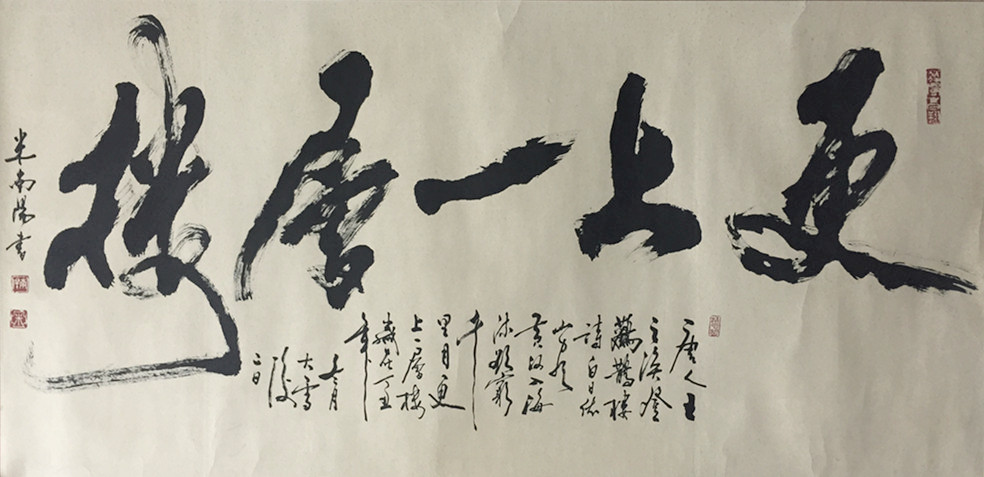 更上一層樓
唐人王
之渙登
鸛鵲樓
詩白日依
山盡
黃河入海
流欲窮
千
里目更
上一層樓
歲在
年
月
大雪
後
二日
米南陽書